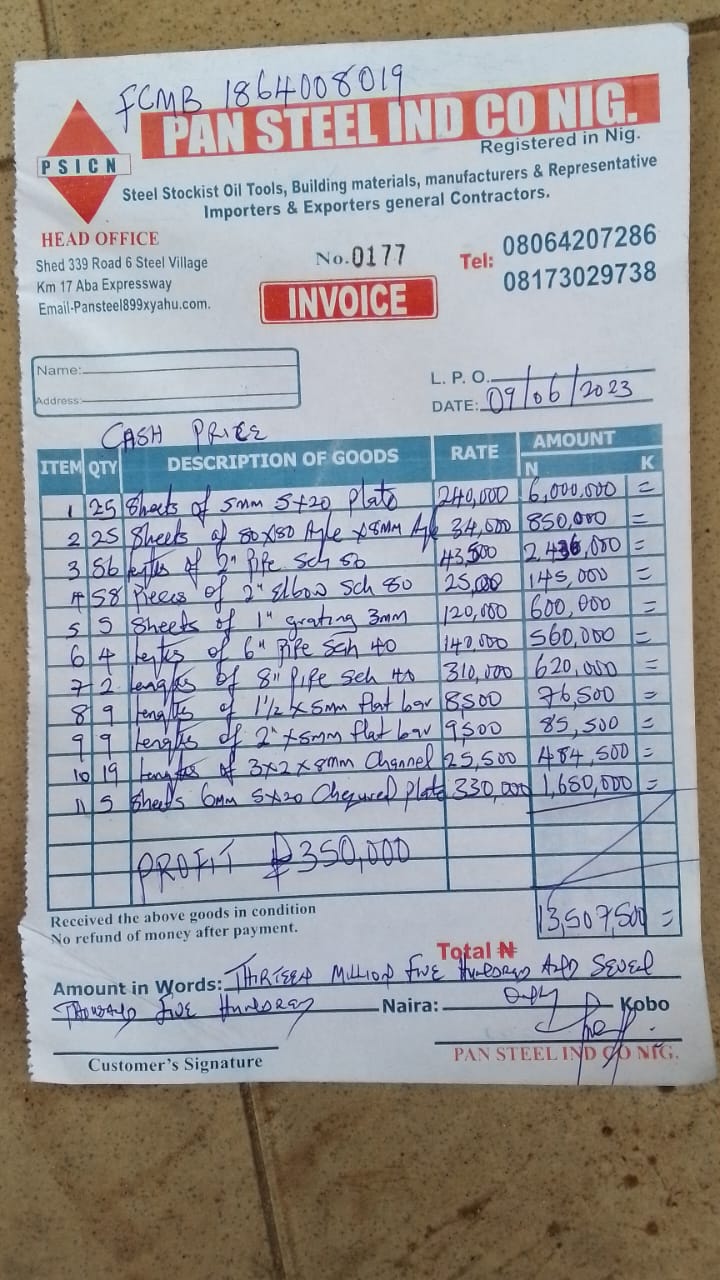 FCMB 1864008019
PAN STEEL IND CO NIG.
Registered in Nig.
PSICN
Steel Stockist Oil Tools, Building materials, manufacturers & Representative
Importers & Exporters general Contractors.
HEAD OFFICE
Shed 339 Road 6 Steel Village
Km 17 Aba Expressway
Email-Pansteel899xyahu.com.
No. 0177
INVOICE
Tel: 08064207286
08173029738
Name:
Address:
L. P. O.
DATE: 09/06/2023
CASH PRICE
ITEM QTY DESCRIPTION OF GOODS RATE AMOUNT
N K
1 25 Sheets of 5mm 5x20 Plate 240,000 6,000,000 =
2 25 Sheets of 80x80 Angle x8mm 34,000 850,000 =
3 56 lengths of 2" Pipe Sch 80 43,500 2,436,000 =
4 58 Pieces of 2" Elbow Sch 80 25,000 145,000 =
5 5 Sheets of 1" grating 3mm 120,000 600,000 =
6 4 lengths of 6" Pipe Sch 40 140,000 560,000 =
7 2 lengths of 8" Pipe Sch 40 310,000 620,000 =
8 9 lengths of 1 1/2 x 5mm flat bar 8500 76,500 =
9 9 lengths of 2" x 5mm flat bar 9,500 85,500 =
10 19 lengths of 3x2x8mm Channel 25,500 484,500 =
11 5 Sheets 6mm 5x20 Chequred Plate 330,000 1,650,000 =
PROFIT ₦350,000
13,507,500 =
Received the above goods in condition
No refund of money after payment.
Total ₦
Amount in Words: THIRTEEN MILLION FIVE HUNDRED AND SEVEN
THOUSAND FIVE HUNDRED Naira: ONLY Kobo
Customer's Signature
PAN STEEL IND CO NIG.